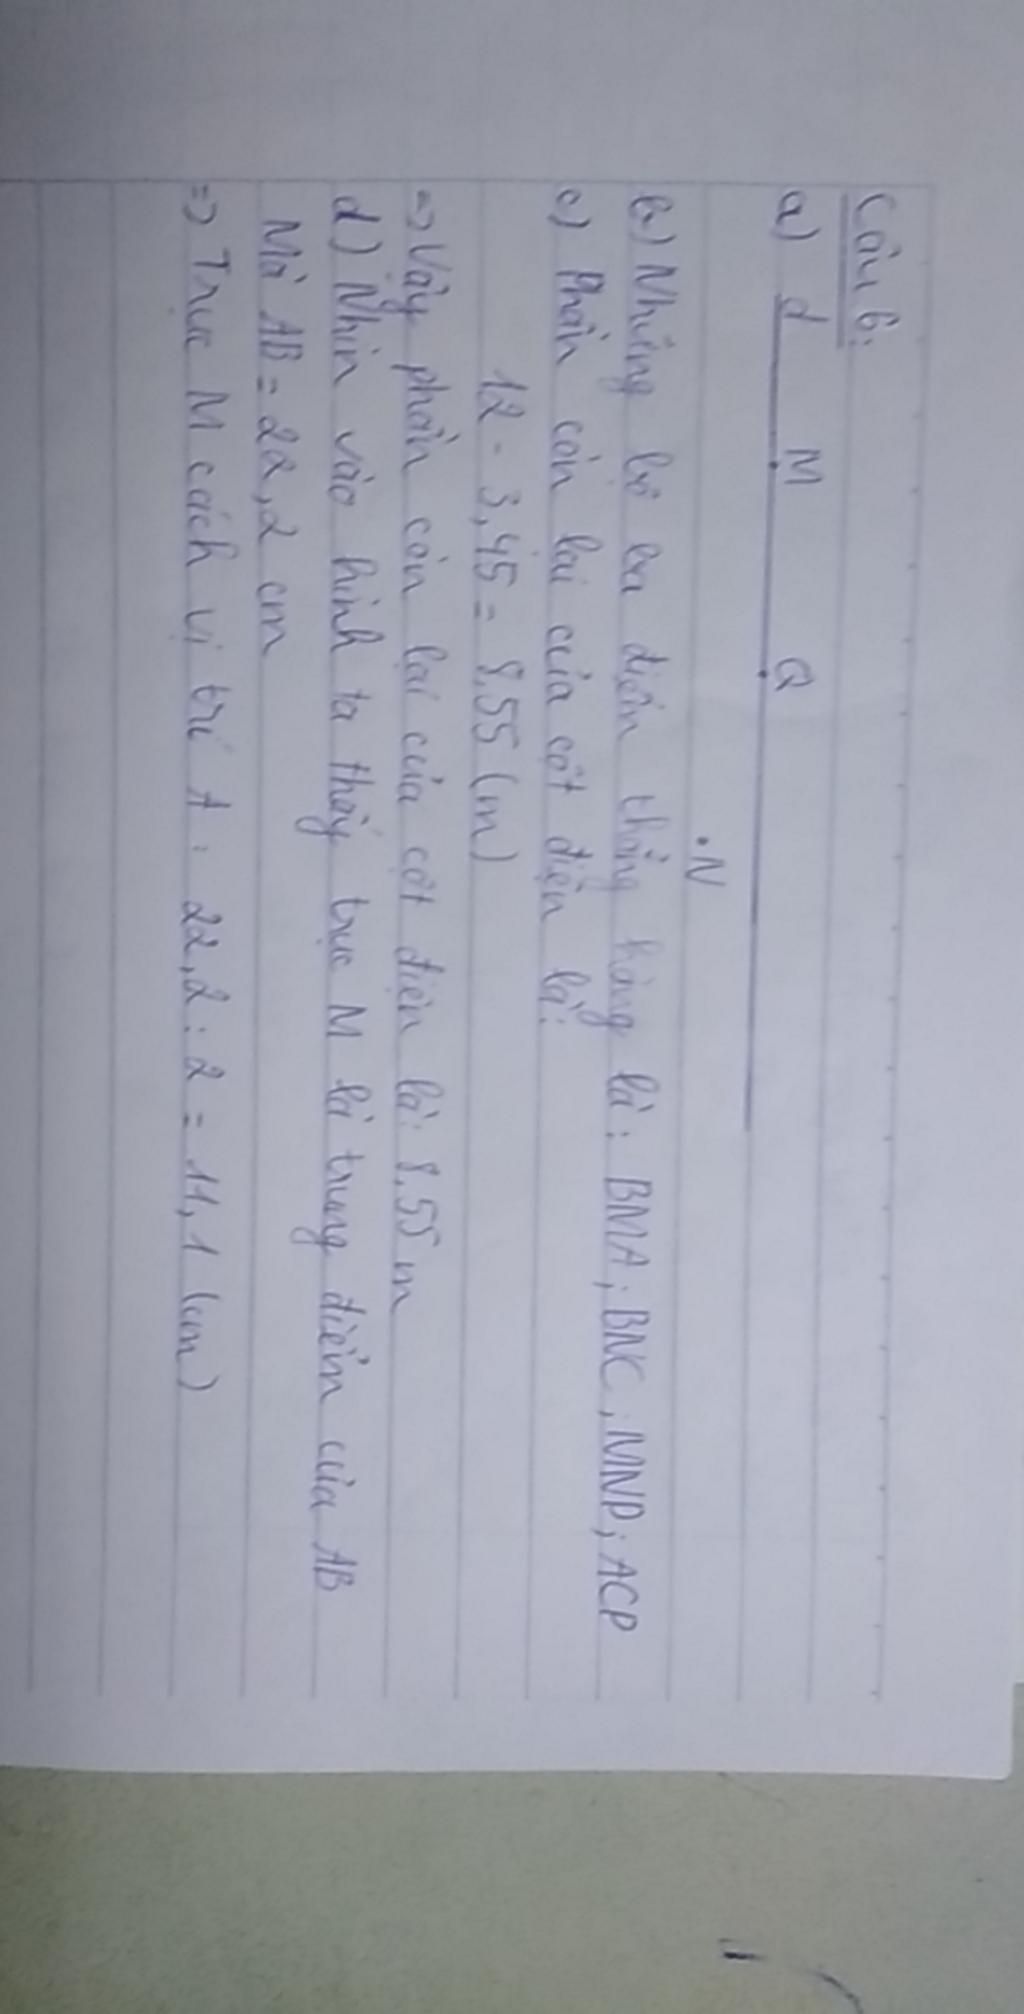 Câu 6:
a) d M Q
.N
b) Những bộ ba điểm thẳng hàng là: BMA; BNC; MNP; ACP
c) Phần còn lại của cột điện là:
12 - 3,45 = 8,55 (m)
=> Vậy phần còn lại của cột điện là: 8,55 m
d) Nhìn vào hình ta thấy trục M là trung điểm của AB
Mà AB = 22,2 cm
=> Trục M cách vị trí A: 22,2 : 2 = 11,1 (cm)